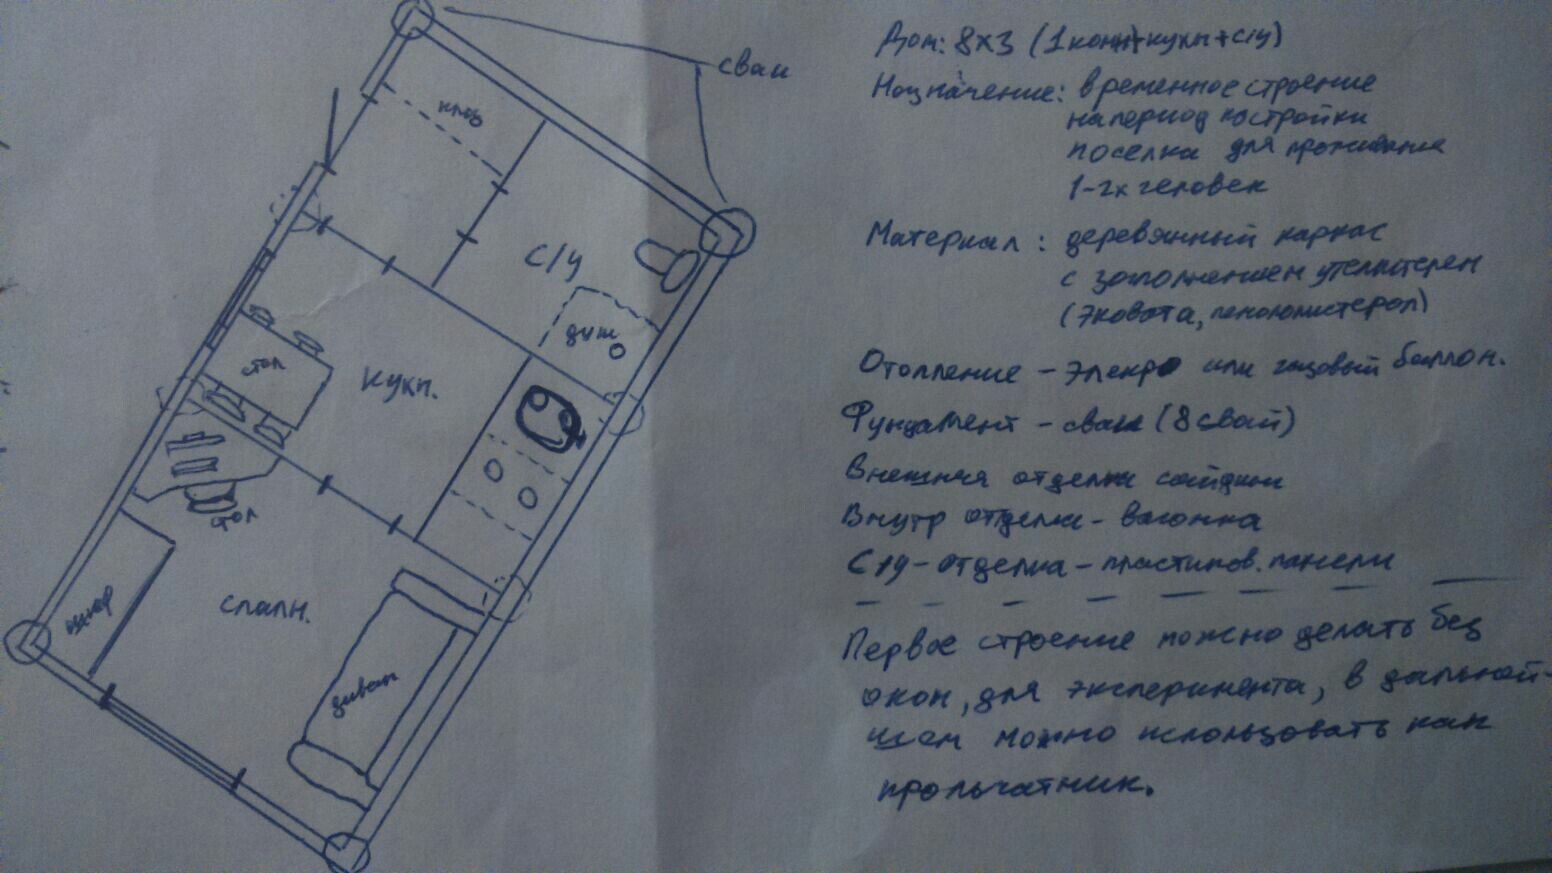 сваи
клад
С/У
душ
стол
кухн.
стол
шкаф
спалн.
диван
Дом: 8х3 (1комн+кухн+с/у)
Назначение: временное строение
на период постройки
поселка для проживания
1-2х человек
Материал: деревянный каркас
с заполнением утеплителем
(эковата, пенополистерол)
Отопление - Электро или газовый баллон.
Фундамент - сваи (8 свай)
Внешняя отделка сайдинг
Внутр отделка - вагонка
С/у - отделка - пластиков. панели
Первое строение можно делать без
окон, для эксперимента, в дальней-
шем можно использовать как